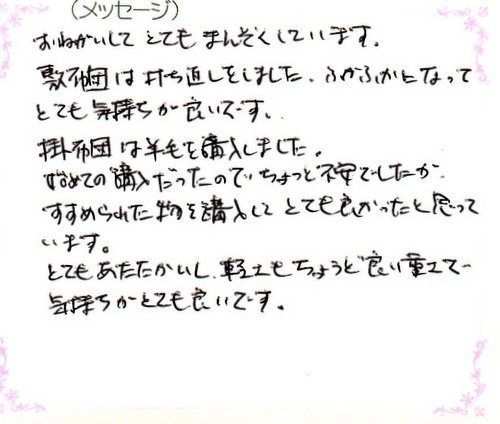 （メッセージ）
おねがいして とても まんぞくしています。
敷布団は打ち直しをしました。ふかふかになって
とても気持ちが良いです。
掛布団は羊毛を購入しました。
初めての購入だったので、ちょっと不安でしたが、
すすめられた物を購入して とても良かったと思って
います。
とてもあたたかいし、軽さもちょうど良い重さで
気持ちがとても良いです。